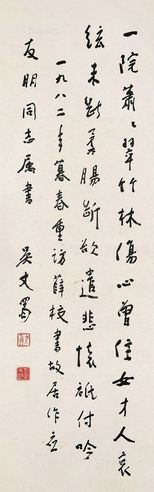 一院萧〻翠竹林伤心曾住女才人哀
弦未断柔肠断欲遣悲怀谁付吟
一九八二年暮春重访薛校书故居作应
友明同志属书 吴丈蜀